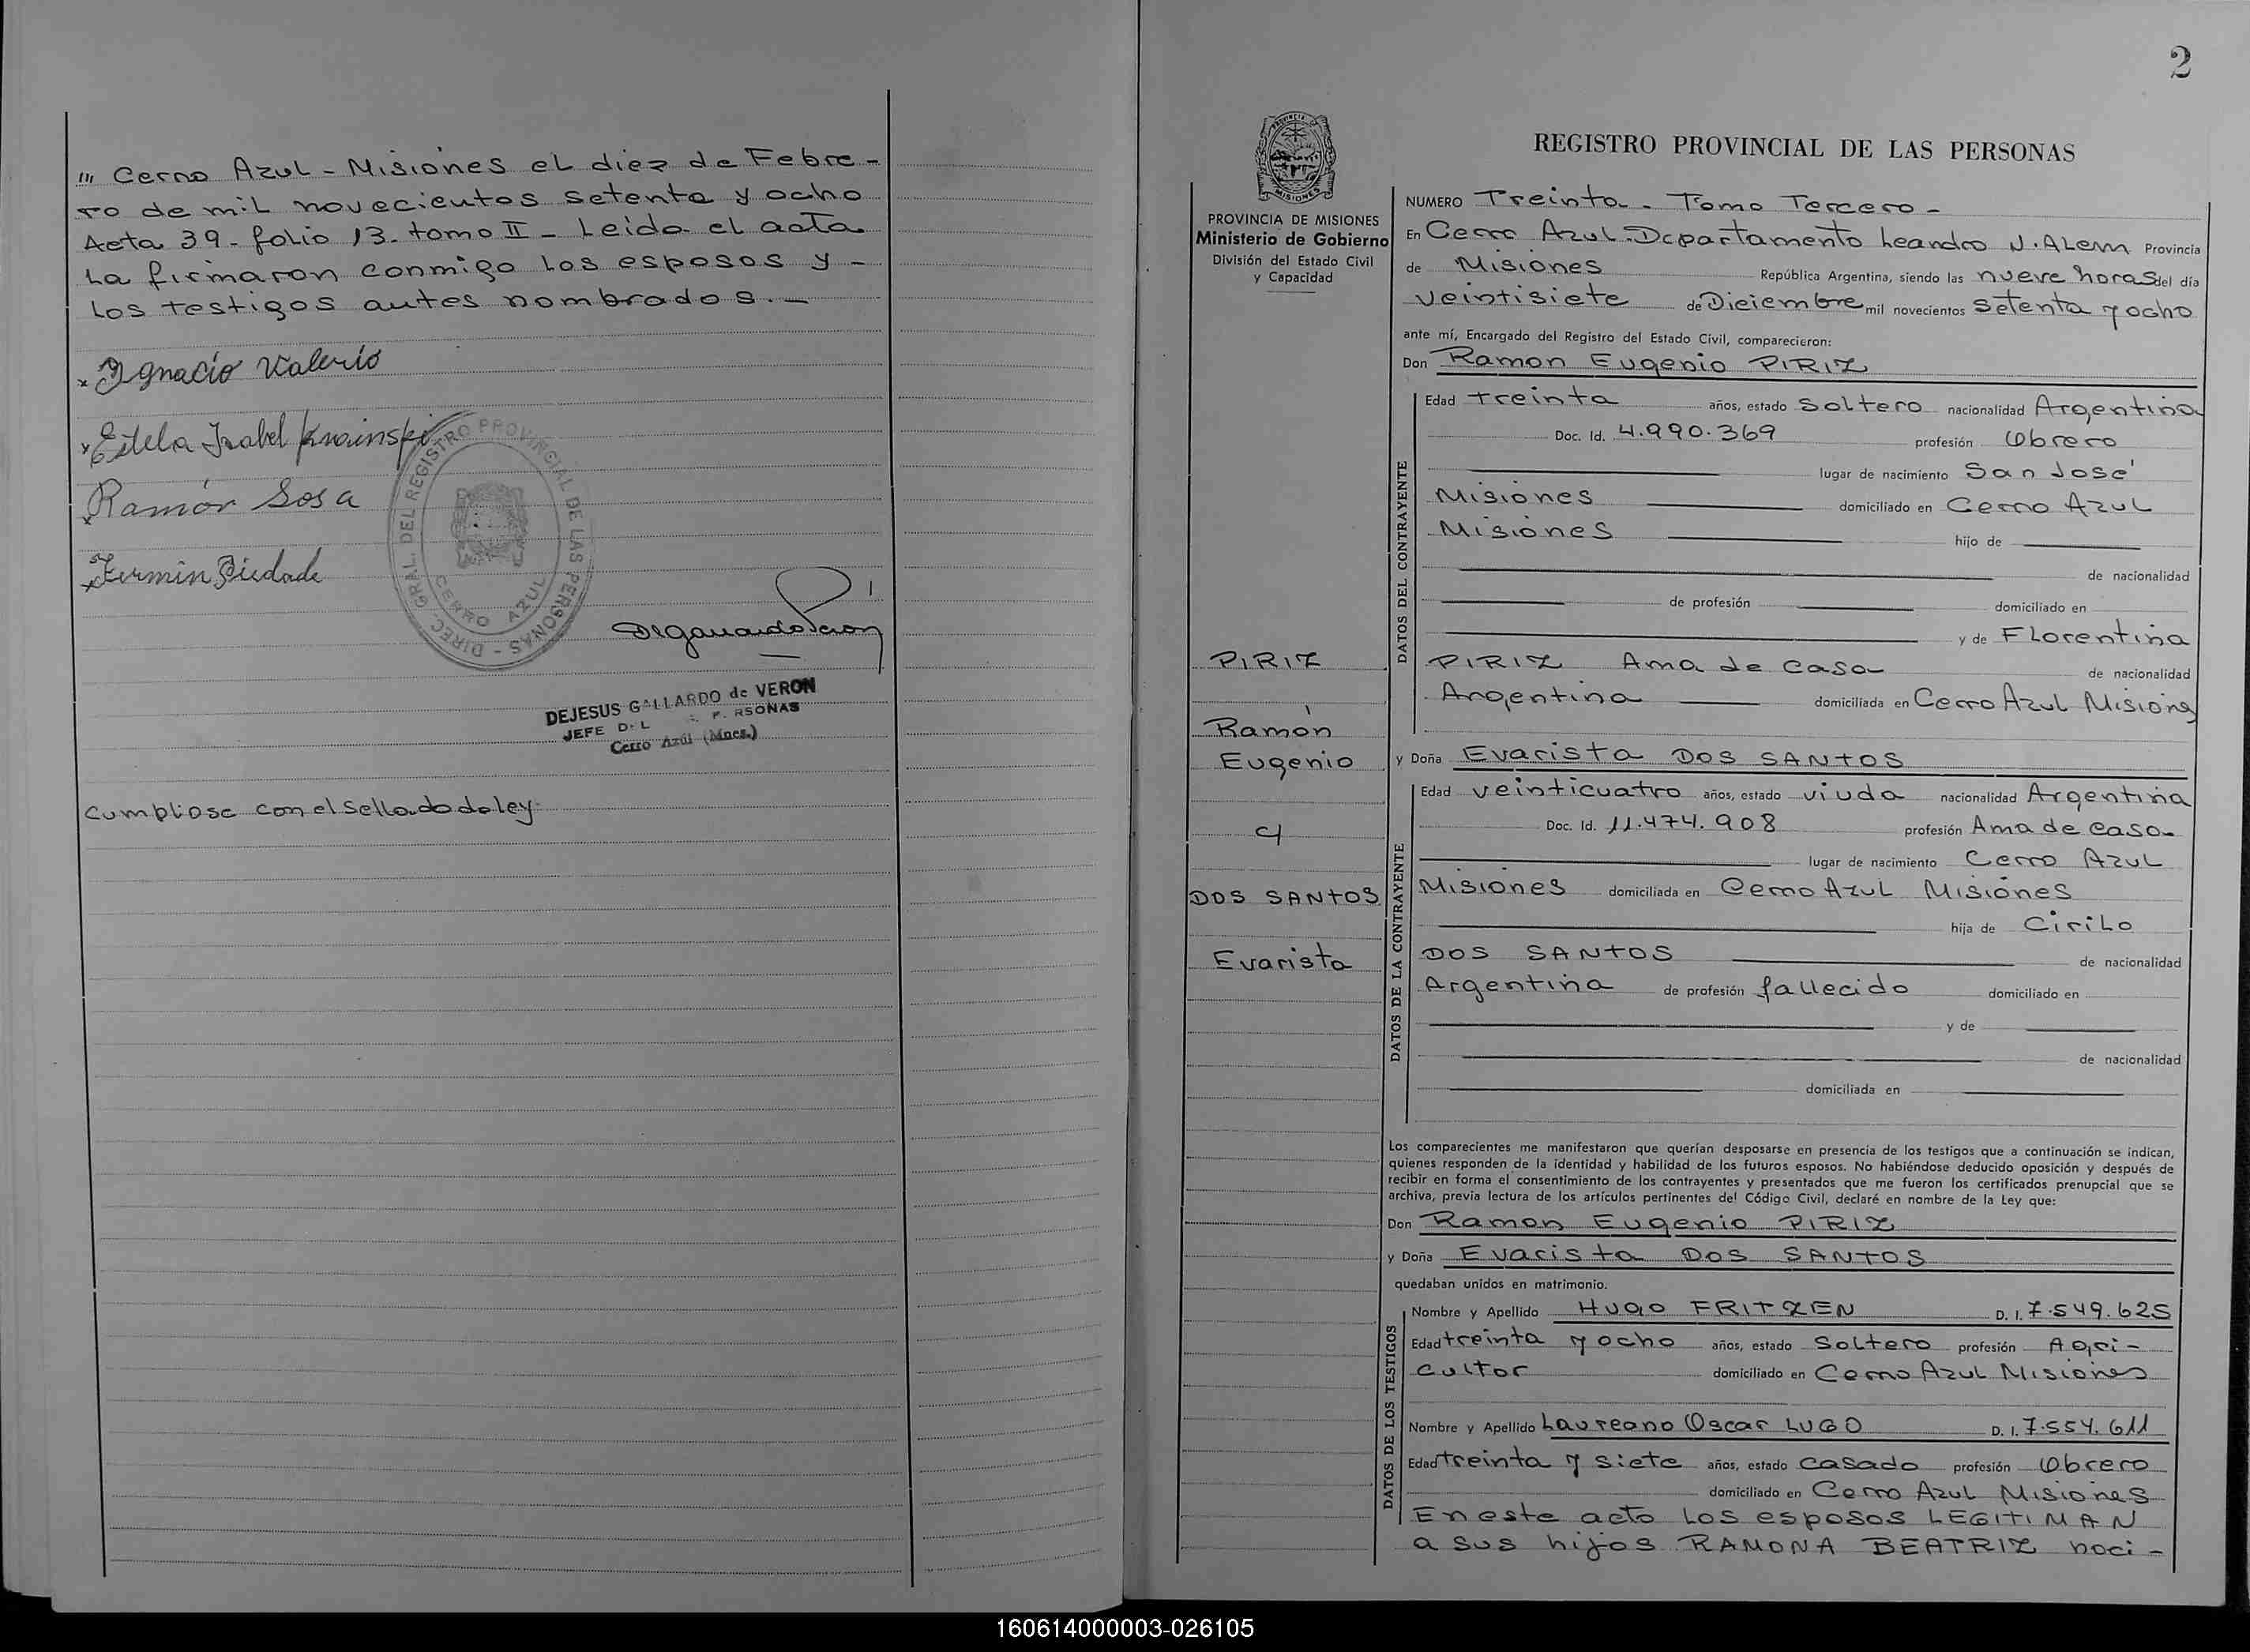 "' Cerro Azul - Misiones el diez de Febre-
ro de mil novecientos setenta y ocho
Acta 39- folio 13- tomo II - Leida el acta
La firmaron conmigo los esposos y -
los testigos antes nombrados.-
x Ignacio Valerio
x Estela Isabel
Ramón Sosa
x Fermin Piedade
DIREC. GRAL. DEL REGISTRO PROVINCIAL DE LAS PERSONAS -
CERRO AZUL
DEJESUS GALLARDO de VERON
JEFE DEL
Cerro Azul (Mnes.)
Cumpliose con el sellado de ley-
2
PROVINCIA DE MISIONES
Ministerio de Gobierno
División del Estado Civil
y Capacidad
PIRIZ
Ramón
Eugenio
c/
DOS SANTOS
Evarista
REGISTRO PROVINCIAL DE LAS PERSONAS
NUMERO Treinta - Tomo Tercero -
En Cerro Azul. Departamento Leandro N. Alem Provincia
de Misiones República Argentina, siendo las nueve horas del día
veintisiete de Diciembre mil novecientos setenta y ocho
ante mí, Encargado del Registro del Estado Civil, comparecieron:
Don Ramon Eugenio PIRIZ
DATOS DEL CONTRAYENTE
Edad treinta años, estado soltero nacionalidad Argentina
Doc. Id. 4.990.369 profesión Obrero
lugar de nacimiento San José
Misiones domiciliado en Cerro Azul
Misiones hijo de
de nacionalidad
de profesión domiciliado en
y de Florentina
PIRIZ Ama de casa de nacionalidad
Argentina domiciliada en Cerro Azul Misiones
y Doña Evarista DOS SANTOS
DATOS DE LA CONTRAYENTE
Edad veinticuatro años, estado viuda nacionalidad Argentina
Doc. Id. 11.474.908 profesión Ama de casa
lugar de nacimiento Cerro Azul
Misiones domiciliada en Cerro Azul Misiones
hija de Cirilo
DOS SANTOS de nacionalidad
Argentina de profesión fallecido domiciliado en
y de
de nacionalidad
domiciliada en
Los comparecientes me manifestaron que querían desposarse en presencia de los testigos que a continuación se indican,
quienes responden de la identidad y habilidad de los futuros esposos. No habiéndose deducido oposición y después de
recibir en forma el consentimiento de los contrayentes y presentados que me fueron los certificados prenupcial que se
archiva, previa lectura de los artículos pertinentes del Código Civil, declaré en nombre de la Ley que:
Don Ramon Eugenio PIRIZ
y Doña Evarista DOS SANTOS
quedaban unidos en matrimonio.
DATOS DE LOS TESTIGOS
Nombre y Apellido HUGO FRITZEN D. I. 7.549.625
Edad treinta y ocho años, estado soltero profesión Agri-
cultor domiciliado en Cerro Azul Misiones
Nombre y Apellido Laureano Oscar LUGO D. I. 7.554.611
Edad treinta y siete años, estado casado profesión Obrero
domiciliado en Cerro Azul Misiones
En este acto los esposos LEGITIMAN
a sus hijos RAMONA BEATRIZ naci-
160614000003-026105